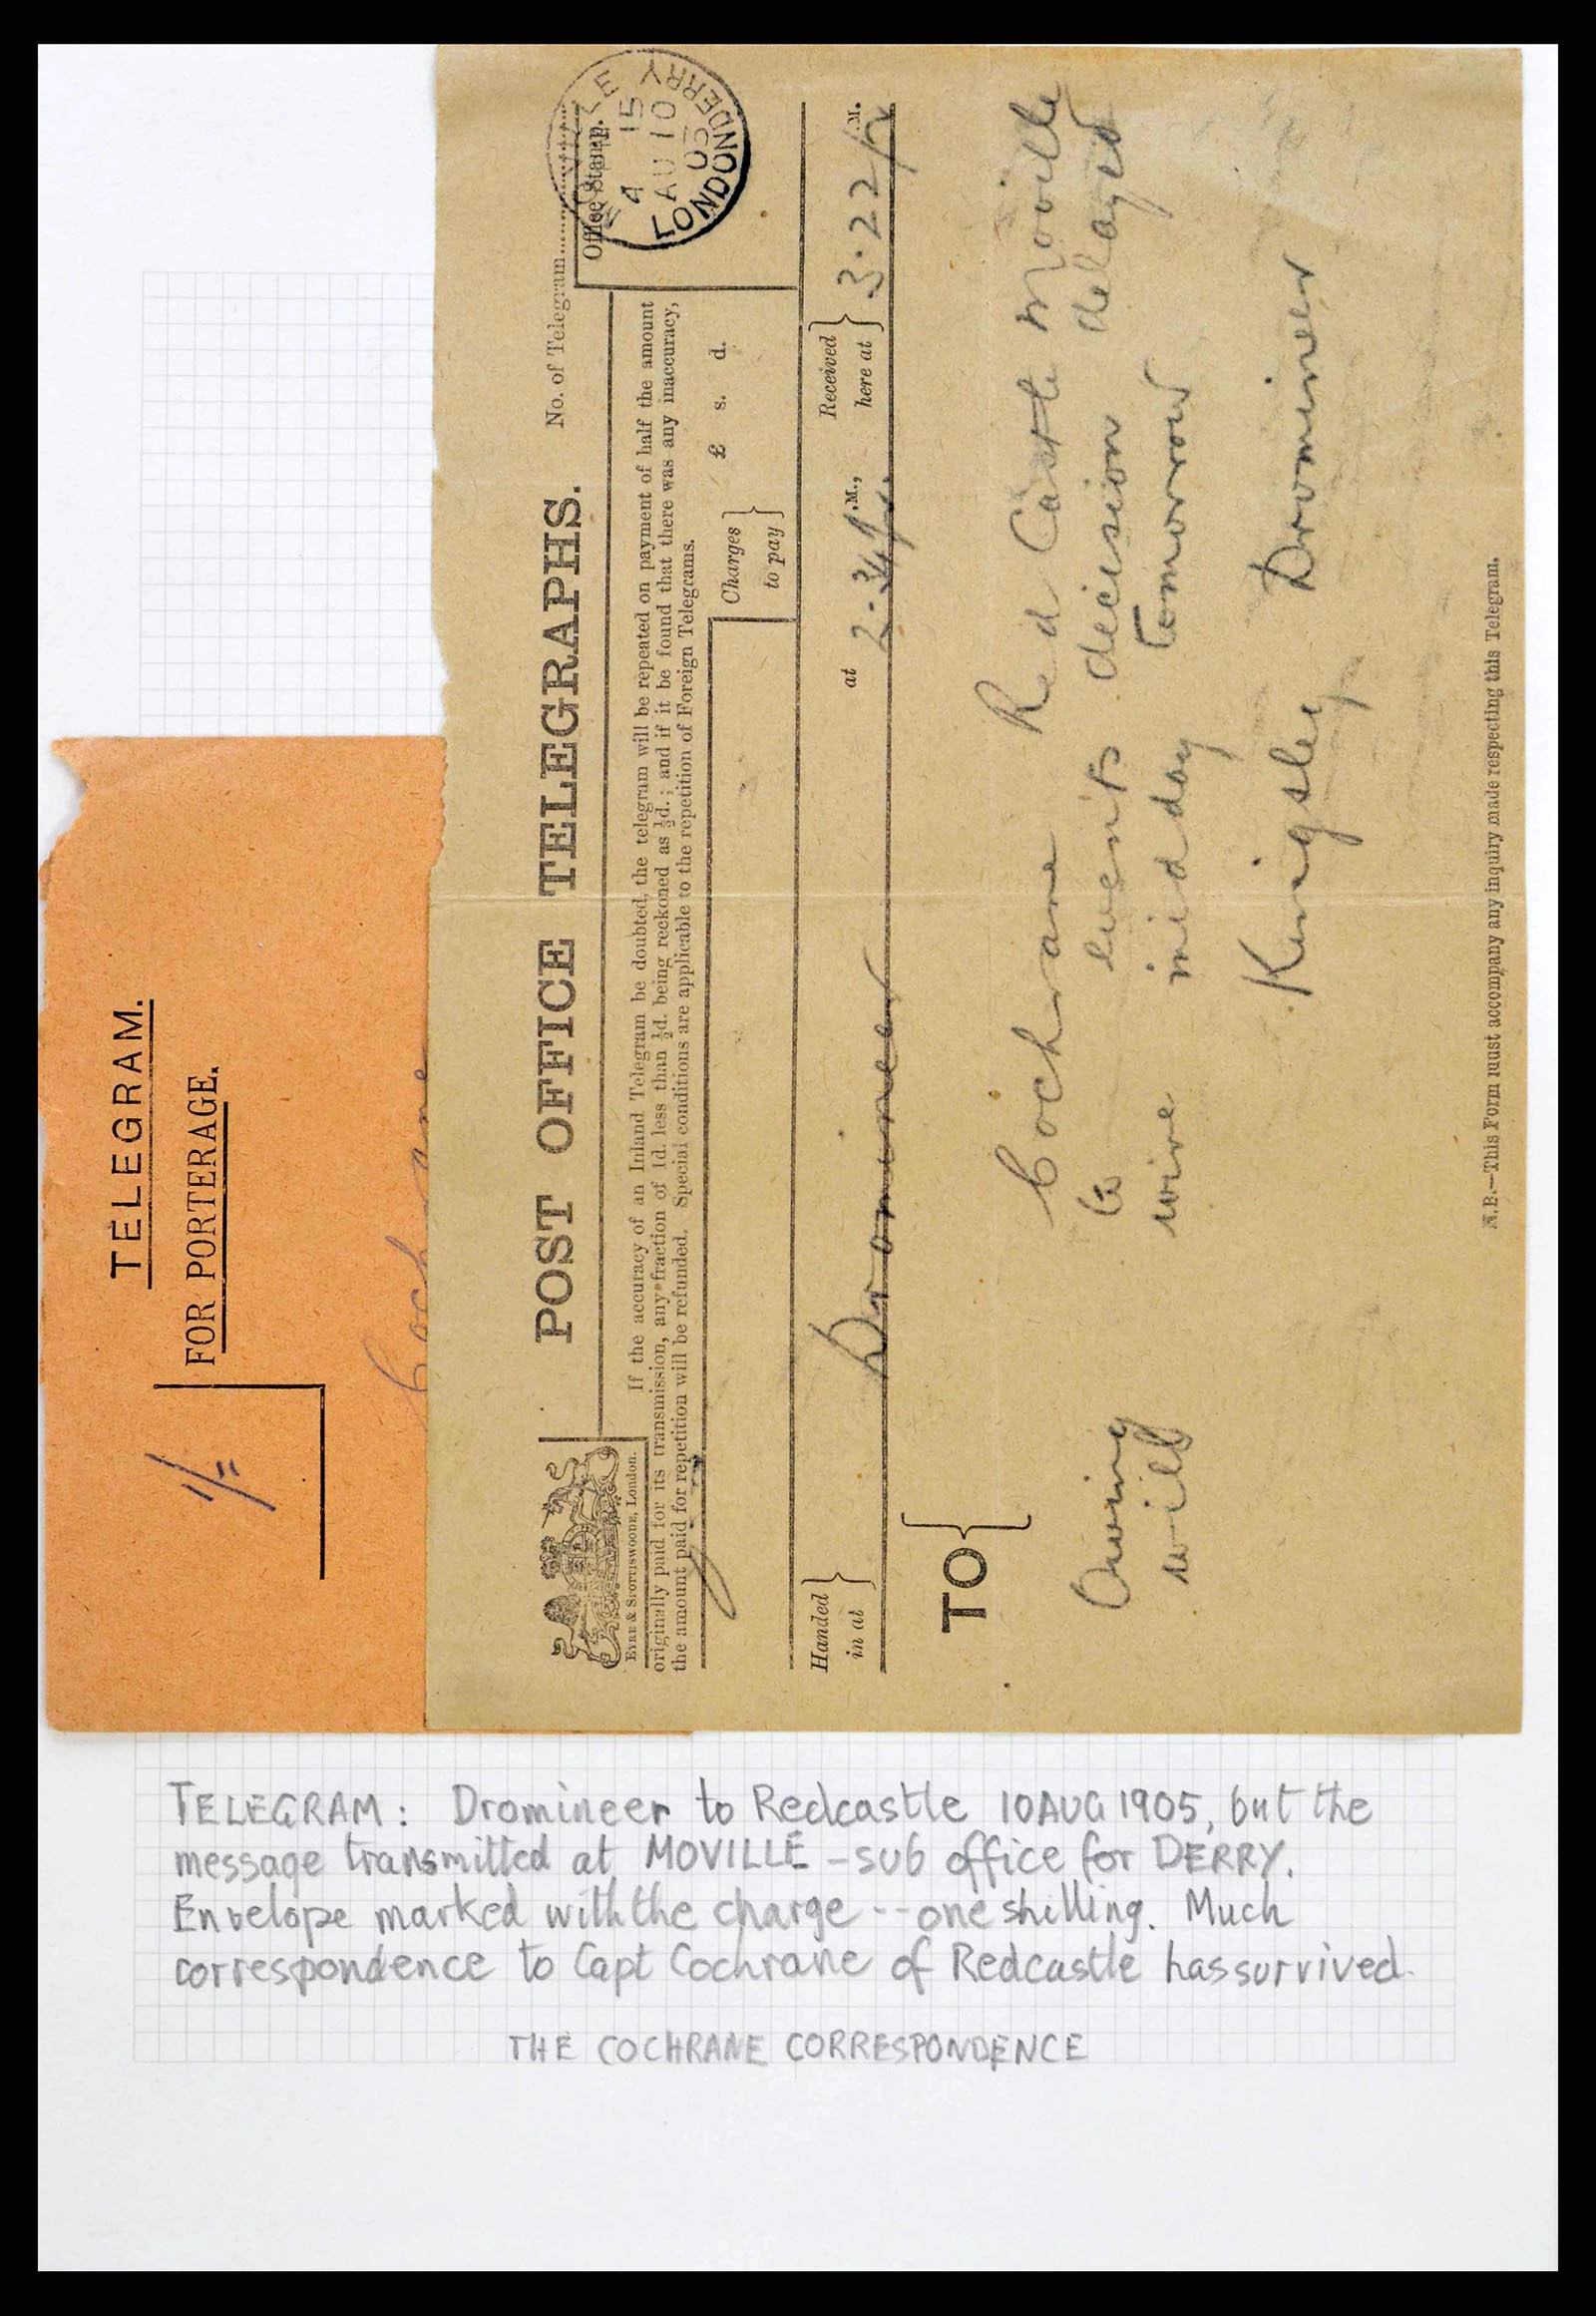 TELEGRAM.
FOR PORTERAGE.
1/=
Cochrane
POST OFFICE TELEGRAPHS.
No. of Telegram
Office Stamp.
MOVILLE
4 15
AU 10
05
LONDONDERRY
EYRE & SPOTTISWOODE, London.
If the accuracy of an Inland Telegram be doubted, the telegram will be repeated on payment of half the amount
originally paid for its transmission, any fraction of 1d. less than ½d. being reckoned as ½d.; and if it be found that there was any inaccuracy,
the amount paid for repetition will be refunded. Special conditions are applicable to the repetition of Foreign Telegrams.
Charges to pay } £ s. d.
Handed in at } Dromineer at 2.34 p.M., Received here at } 3.22 p.M.
TO { Cochrane Red Castle Moville
Owing to events decision delayed
will wire midday tomorrow
Kingsley Dromineer
N.B.—This Form must accompany any inquiry made respecting this Telegram.
TELEGRAM: Dromineer to Redcastle 10 AUG 1905, but the
message transmitted at MOVILLE - sub office for DERRY.
Envelope marked with the charge -- one shilling. Much
correspondence to Capt Cochrane of Redcastle has survived.
THE COCHRANE CORRESPONDENCE